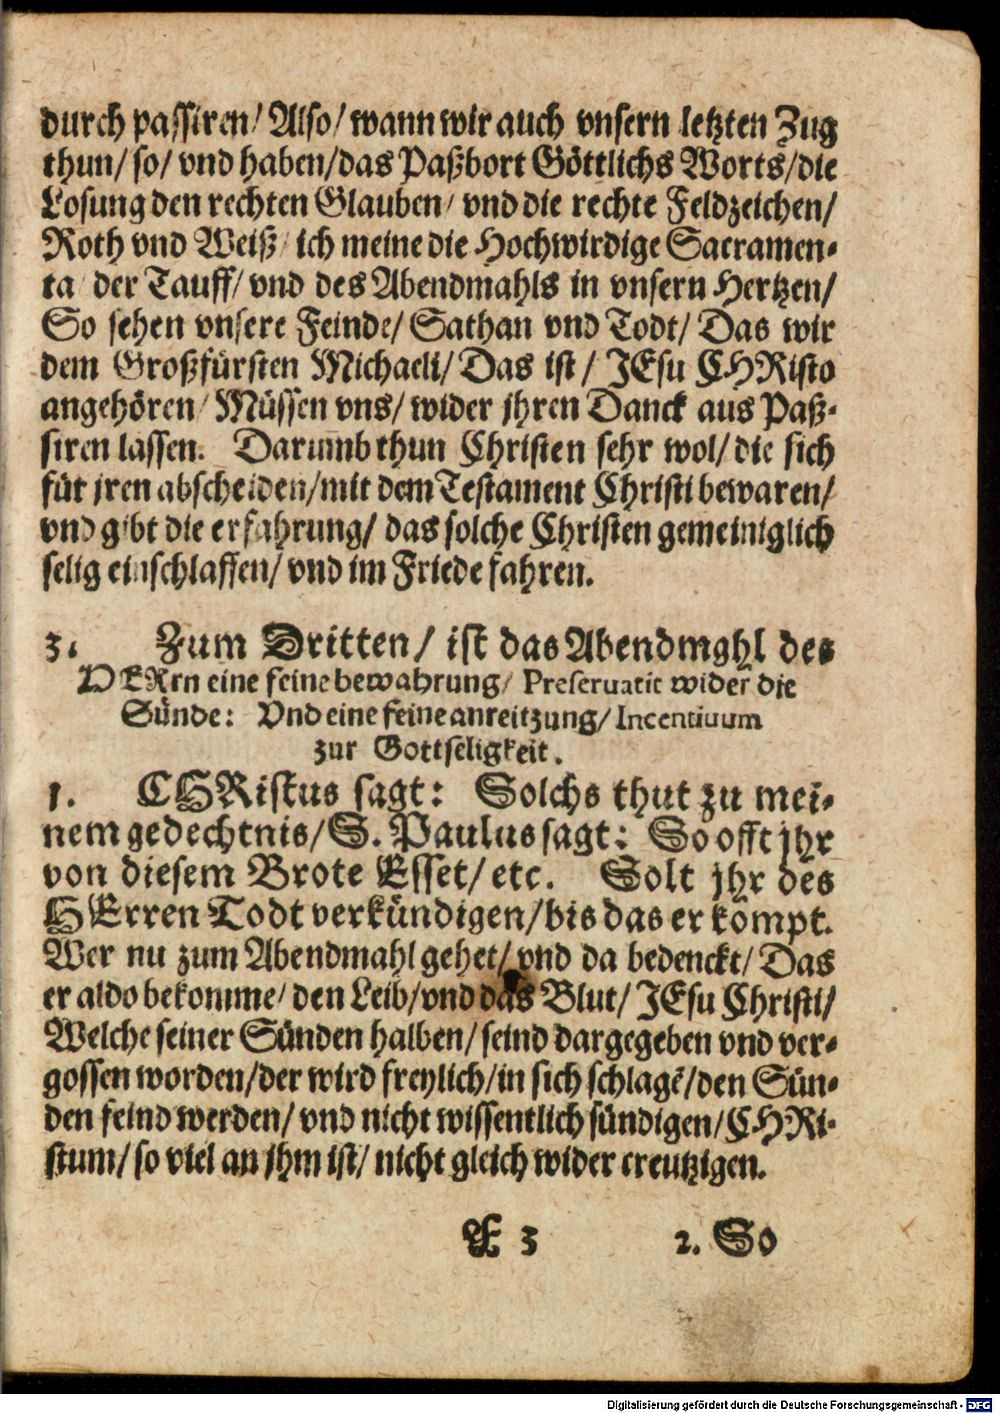 durch passiren/ Also/ wann wir auch vnsern letzten Zug
thun/ so/ vnd haben/ das Paßbort Göttlichs Worts/ die
Losung den rechten Glauben/ vnd die rechte Feldzeichen/
Roth vnd Weiß/ ich meine die Hochwirdige Sacramen-
ta der Tauff/ vnd des Abendmahls in vnsern Hertzen/
So sehen vnsere Feinde/ Sathan vnd Todt/ Das wir
dem Großfürsten Michaeli/ Das ist/ JEsu CHRisto
angehören/ Müssen vns/ wider jhren Danck aus Paß-
siren lassen. Darumb thun Christen sehr wol/ die sich
für jren abscheiden/ mit dem Testament Christi bewaren/
vnd gibt die erfahrung/ das solche Christen gemeiniglich
selig einschlaffen/ vnd im Friede fahren.
3. Zum Dritten/ ist das Abendmghl des
HERrn eine feine bewahrung/ Preseruatif wider die
Sünde: Vnd eine feine anreitzung/ Incentiuum
zur Gottseligkeit.
1. CHRistus sagt: Solchs thut zu mei-
nem gedechtnis/ S. Paulus sagt: So offt jhr
von diesem Brote Esset/ etc. Solt jhr des
HErren Todt verkündigen/ bis das er kömpt.
Wer nu zum Abendmahl gehet/ vnd da bedenckt/ Das
er aldo bekomme/ den Leib/ vnd das Blut/ JEsu Christi/
Welche seiner Sünden halben/ seind dargegeben vnd ver-
gossen worden/ der wird freylich/ in sich schlagē/ den Sün-
den feind werden/ vnd nicht wissentlich sündigen/ CHRi-
stum/ so viel an jhm ist/ nicht gleich wider creutzigen.
E 3 2. So
Digitalisierung gefördert durch die Deutsche Forschungsgemeinschaft - DFG